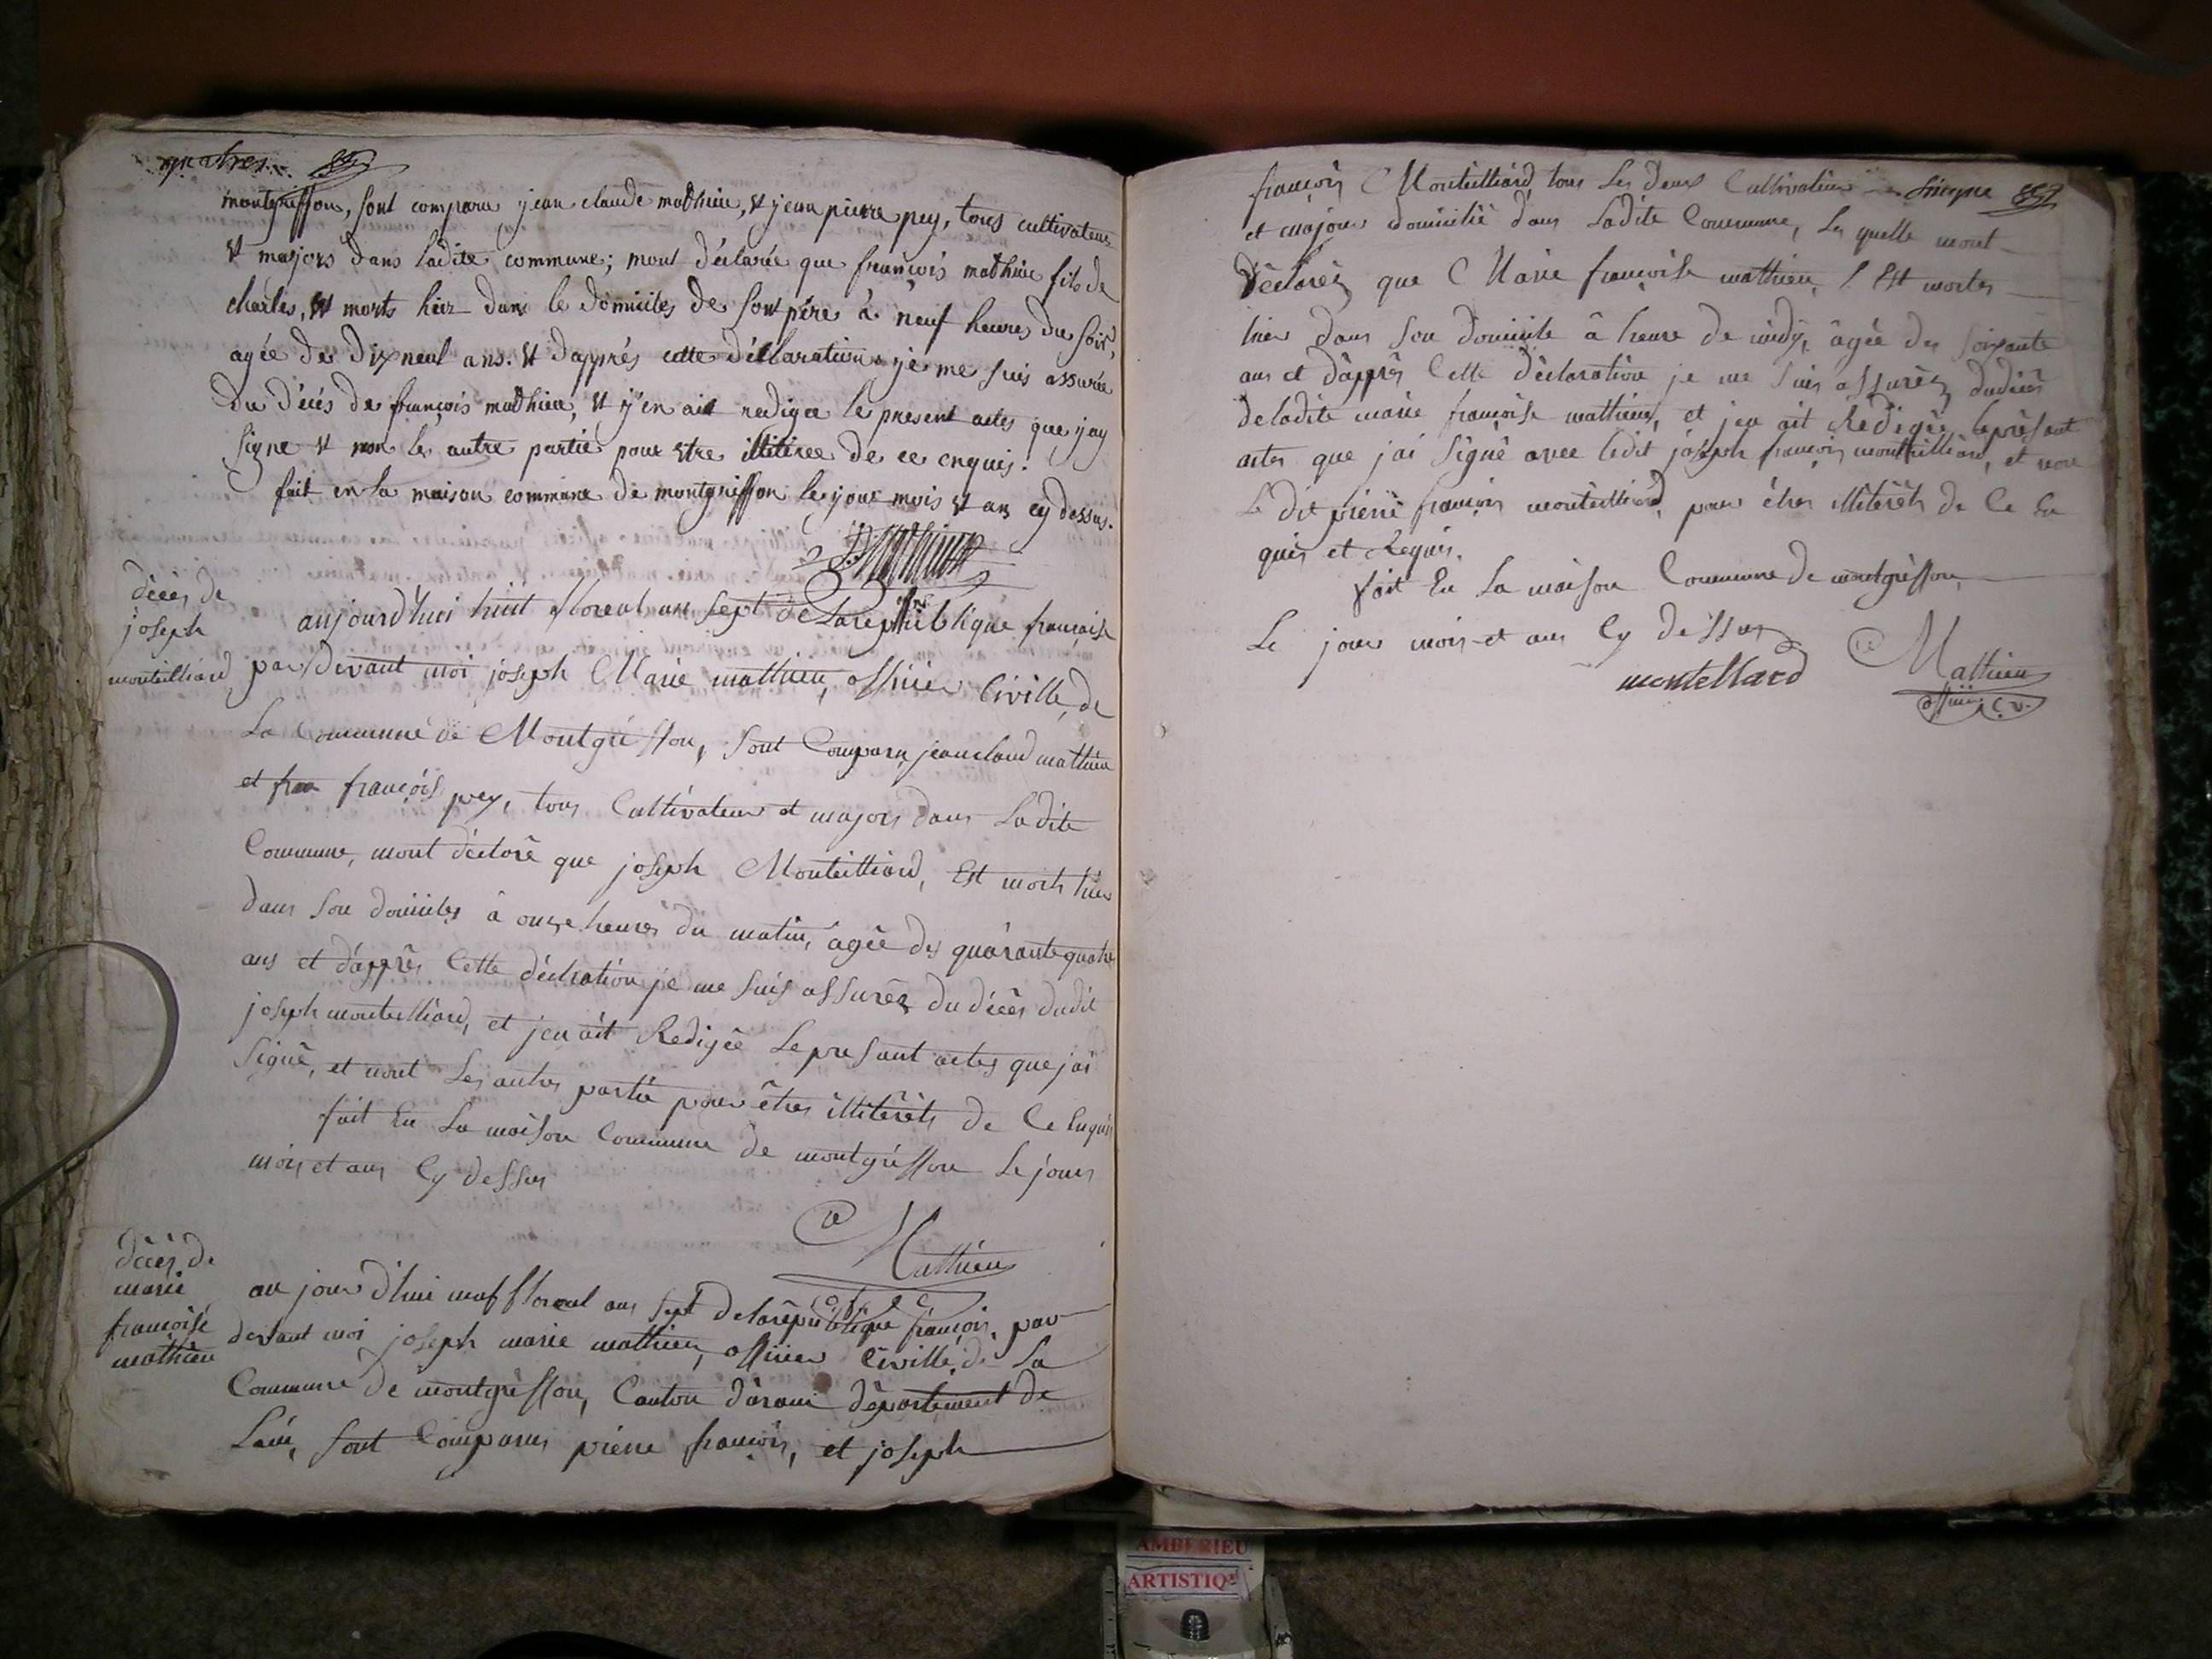 quatres.
montgriffon, sont comparu jean claude mathieu, et jean pierre pey, tous cultivateurs
et majors dans ladite commune; mont déclarée que francois mathieu fils de
charles, et morts hier dans le domiciles de son père à neuf heures du soir,
agée de dix neuf ans. et dapprés cette déclaration je me suis assurée
du décés de françois mathieu, et j'en ait rediger le present actes que j'ay
signe et non les autre partie pour etre illitiree de ce enquis.
fait en la maison commune de montgriffon les jour mois et an cy dessus.
décès de
joseph
monteilliard
aujourd'huei huit floreal an sept de La republique francaise
par devant moi joseph Marie mathieu, officier Civille, de
La Commune de Montgriffon, sont Comparu jean claud mathieu
et fran françois pey, tous Cultivateur et majors dans Ladite
Commune, mont déclaré que joseph Monteilliard, Est morts hier
dans son domiciles à onze heures du matin, âgée des quarante quatre
ans et dapprès Cette décleation je me suis assurêz du décès dudit
joseph monteilliard, et jen ait Redigée Le presant actes que jai
signê, et nont Les autres partie pour êtres illiterêts de Ce Enquis
fait En La maison Commune de montgriffon Le jours
mois et ans Cy dessus
Mathieu
décès de
marie
francoise
mathieu
au jour d'hui neuf floreal ans sept de la rêpublique françois, par
devant moi joseph marie mathieu, officier Civille de La
Commune de montgriffon, Canton d'arani département de
Lain, sont Comparus piérre françois, et joseph
françois Monteilliard tous Les deux Cultivateur
et majour domicilié dans Ladite Commune, Les quelle mont
Déclarêz que Marie françoise mathieu, Est mortes
hier dans son domicile â heure de midy, âgée des soixante
ans et dapprês Cette déclaration je me suis assurêz dudécès
de ladite marie françoise mathieu, et jen ait Redigée le présant
actes que jai signê avec ledit joseph françois monteilliard, et non
Le dit piérre françois monteilliard, pour êtres illiterêts de Ce En
quis et Requis.
fait En La maison Commune de montgriffon
Le jour mois et ans Cy dessus
montelliard
Mathieu
officier C. v.
AMBERIEU
ARTISTIQ